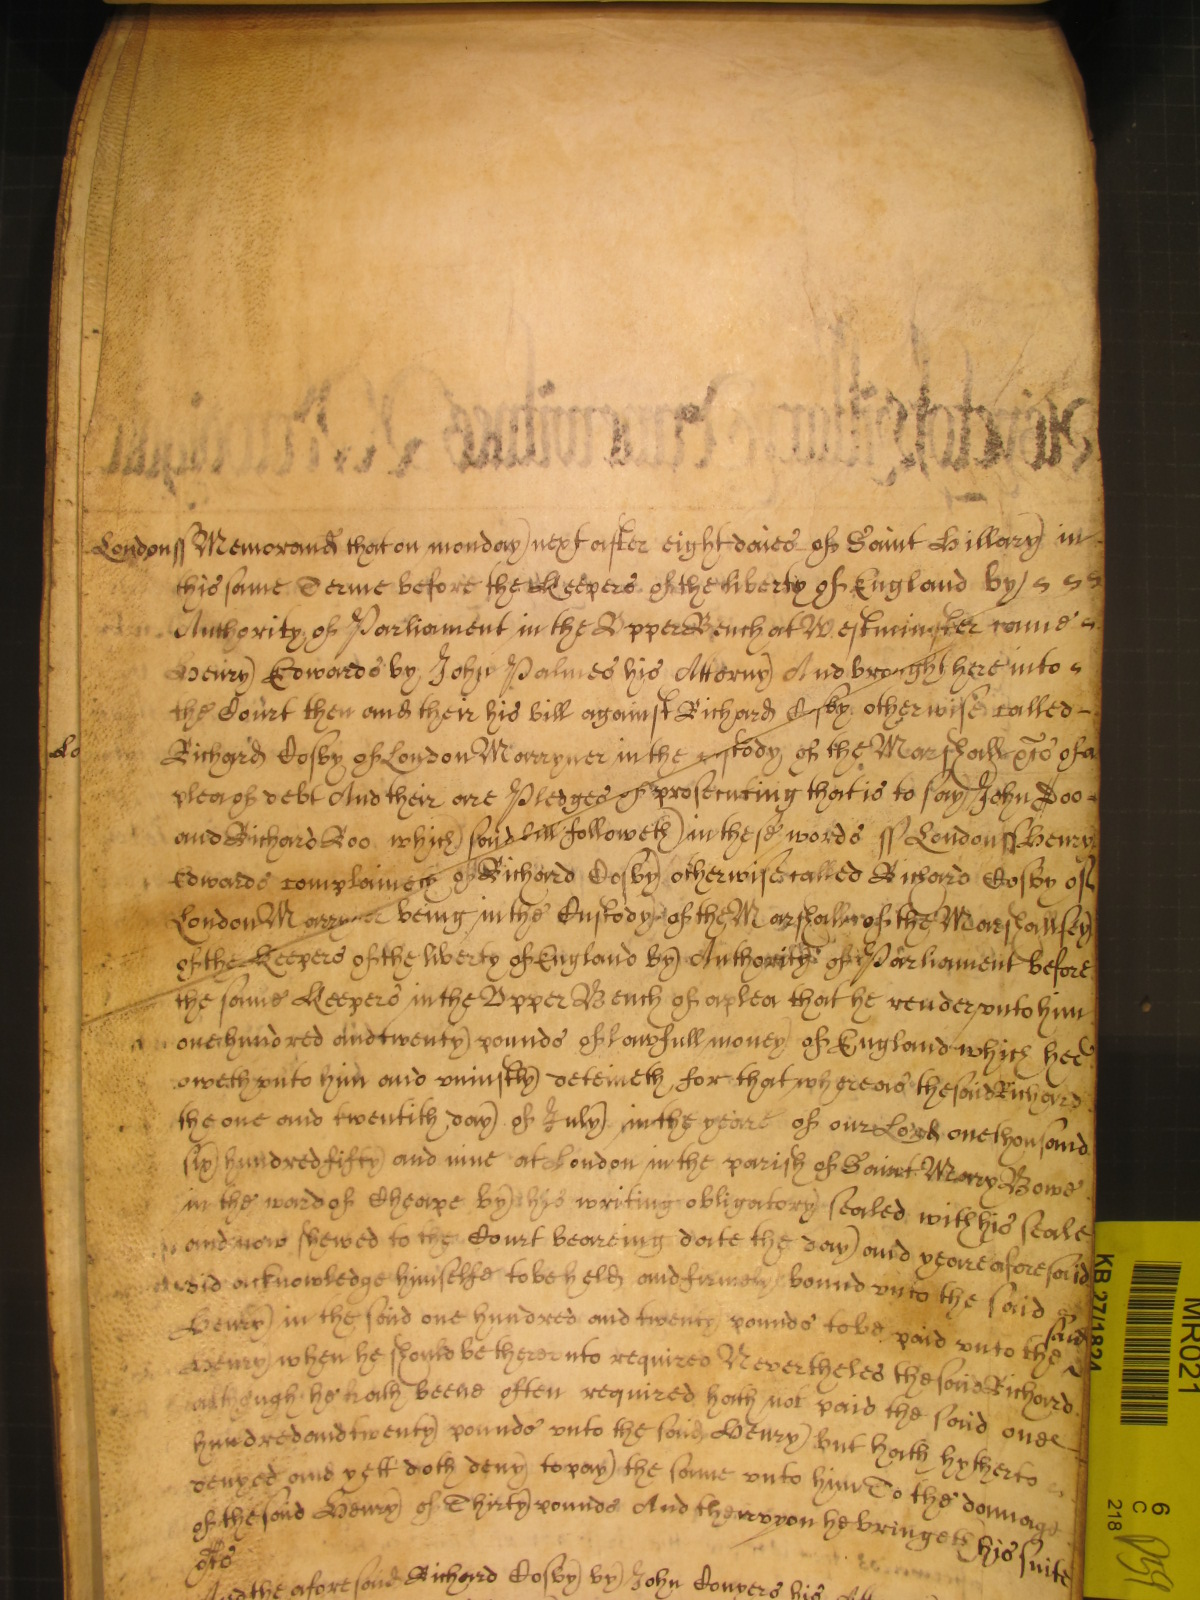 Londonss Memorand that on monday next after eight daies of Saint Hillary in
this same Terme before the Keepers of the liberty of England by
Authority of Parliament in the Upper Bench at Westminster came
Henry Edwards by John Palmes his Atterny And brought here into
the Court then and their his bill against Richard Cosby otherwise called
Lo
Richard Cosby of London Marryner in the custody of the Marshall &c of a
plea of debt And their are Pledges of prosecuting that is to say John Doo
and Richard Roo which said bill followeth in these words ss London ss Henry
Edwards complaineth of Richard Cosby otherwise called Richard Cosby of
London Marryner being in the Custody of the Marshall of the Marshallsey
of the Keepers of the liberty of England by Authority of Parliament before
the same Keepers in the Upper Bench of a plea that he render unto him
one hundred and twenty pounds of lawfull money of England which hee
oweth unto him and uniustly deteineth for that whereas the said Richard
the one and twentith day of July in the yeare of our Lord one thousand
six hundred fifty and nine at London in the parish of Saint Mary Bowe
in the ward of Cheape by his writing obligatory sealed with his seale
and now shewed to the Court beareing date the day and yeare aforesaid
did acknowledge himselfe to be held and firmely bound unto the said
Henry in the said one hundred and twenty pounds to be paid unto the said
Henry when he should be thereunto required Nevertheles the said Richard
although he hath beene often required hath not paid the said one
hundred and twenty pounds unto the said Henry but hath hytherto
denyed and yett doth deny to pay the same unto him To the damage
of the said Henry of Thirty pounds And thereupon he bringeth his suite
&c
And the aforesaid Richard Cosby by John Conyers his
KB 27/1824
MR021
6
C
218